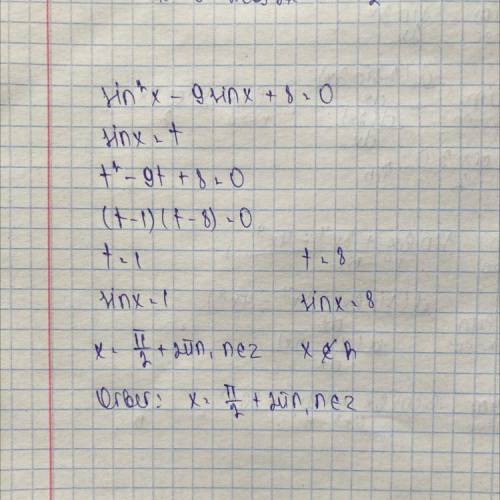 sin²x - 9sinx + 8 = 0
sinx = t
t² - 9t + 8 = 0
(t-1)(t-8) = 0
t = 1 t = 8
sinx = 1 sinx = 8
x = π/2 + 2πn, n∈z x ∉ R
Ответ: x = π/2 + 2πn, n∈z